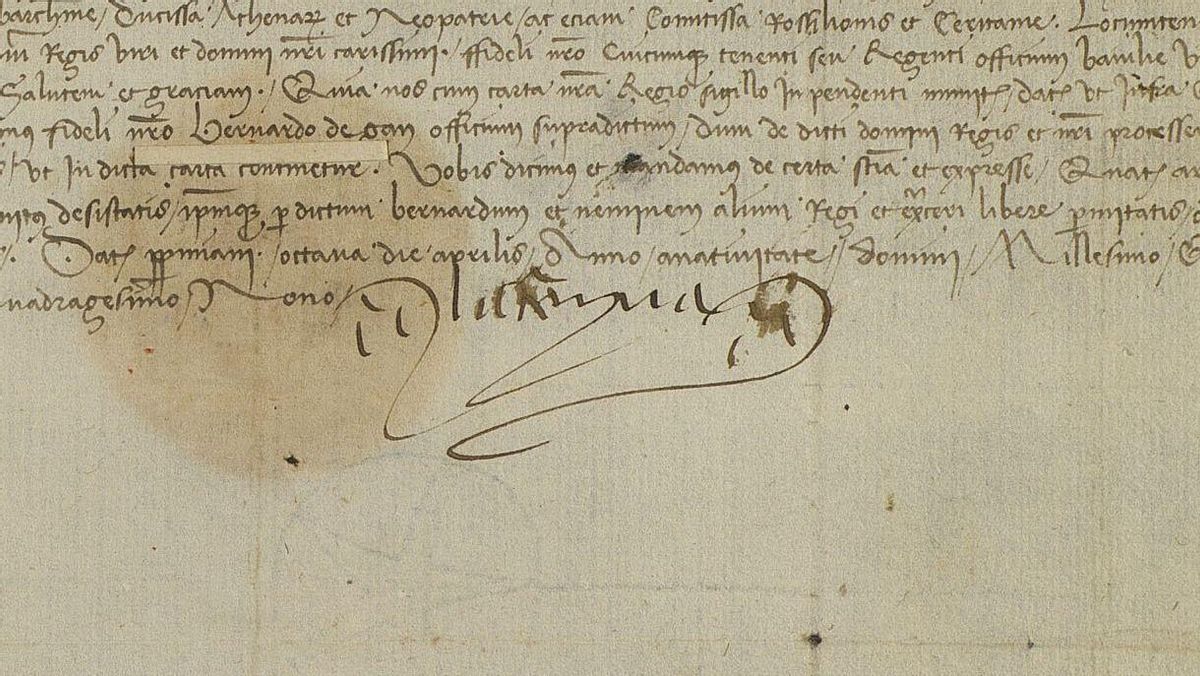 barchnne, Ducissa Athenarum et Neopatrie, ac eciam Comitissa Rossilionis et Ceritanie. Locumten
Regis viri et domini nr̃i carissimi. ffideli nr̃o Cuicumque tenenti seu Regenti officium baiulie
Salutem et graciam. Quia nos cum carta nr̃a Regio sigillo Inpendenti munit, dat vt Infra
fideli nr̃o bernardo de gan officium supradictum, dum de dicti domini Regis et nr̃i processe
vt In dicta carta continetur. Vobis dicimus et mandamus de certa scia et expresse, Quat
desistatis, ipm̃que p dictum bernardum et neminem alium Regi et exceri libere pmitatis,
Dat ppiniani, octaua die aprilis, Anno, anatiuitate, domini, Millesimo,
uadragesimo, Nono,